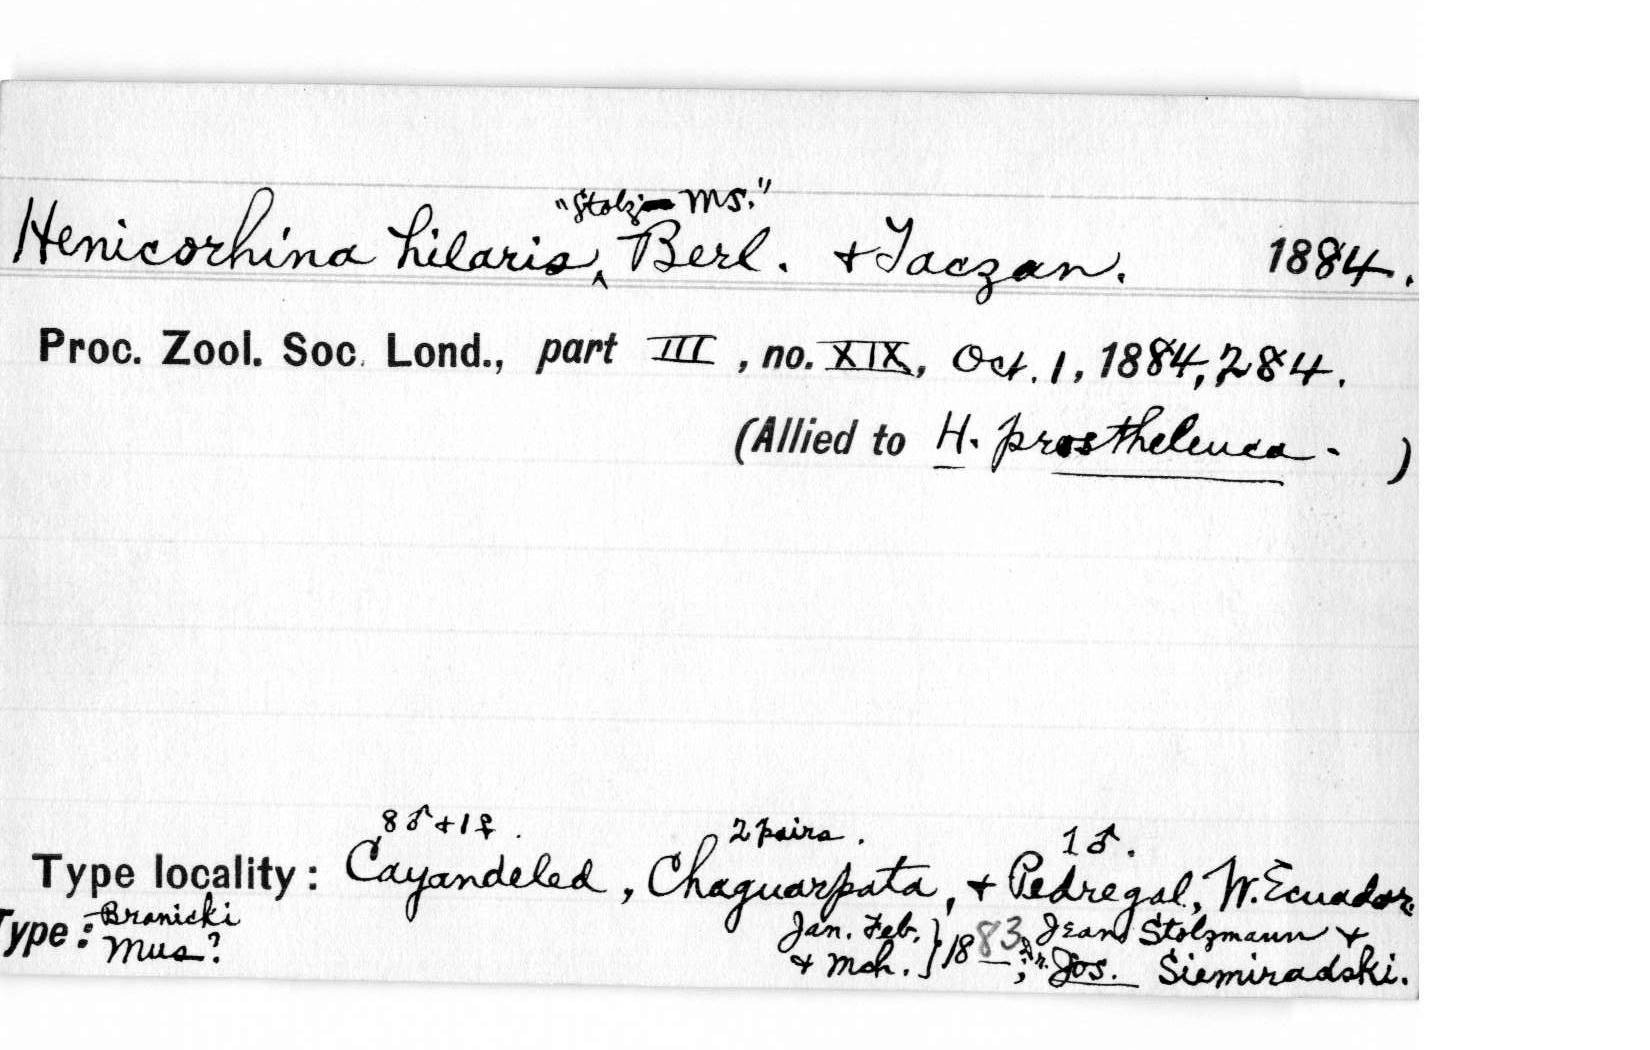 "Stolz MS."
Henicorhina hilaris ‸ Berl. + Taczan. 1884.
Proc. Zool. Soc. Lond., part III, no. XIX, Oct. 1, 1884, 284.
(Allied to H. prostheleuca. )
8♂ + 1♀. 2 pairs. 1♂.
Type locality: Cayandeled, Chaguarpata, + Pedregal, W. Ecuador.
Type: Branicki Jan. Feb. } 1883, Jean Stolzmann +
Mus? + Mch. } ; Dr. Jos. Siemiradski.